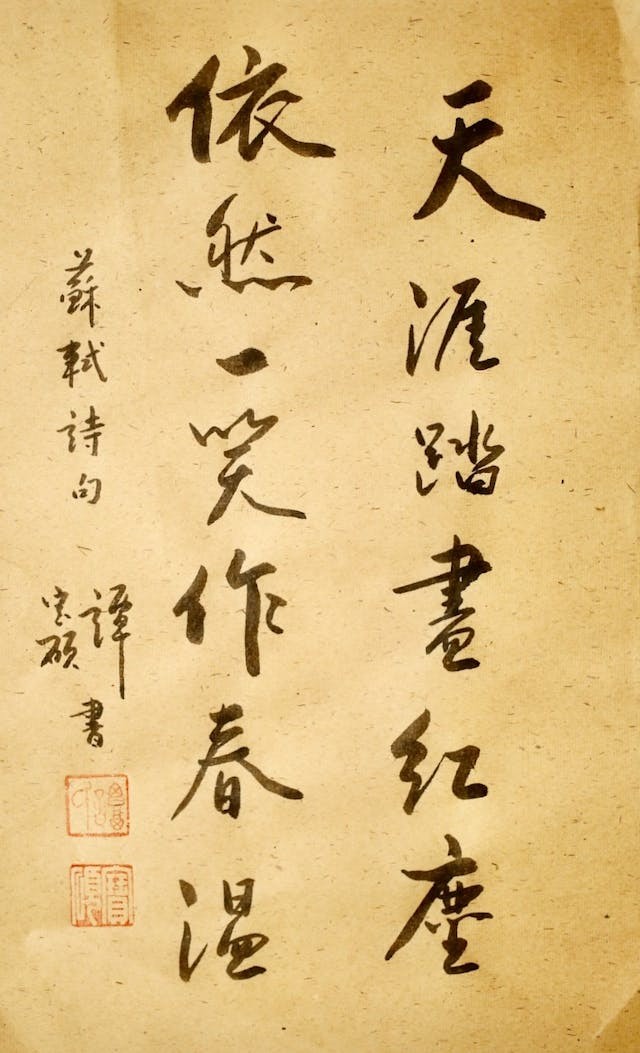 天涯踏盡紅塵
依然一笑作春温
蘇軾詩句 譚宝碩書